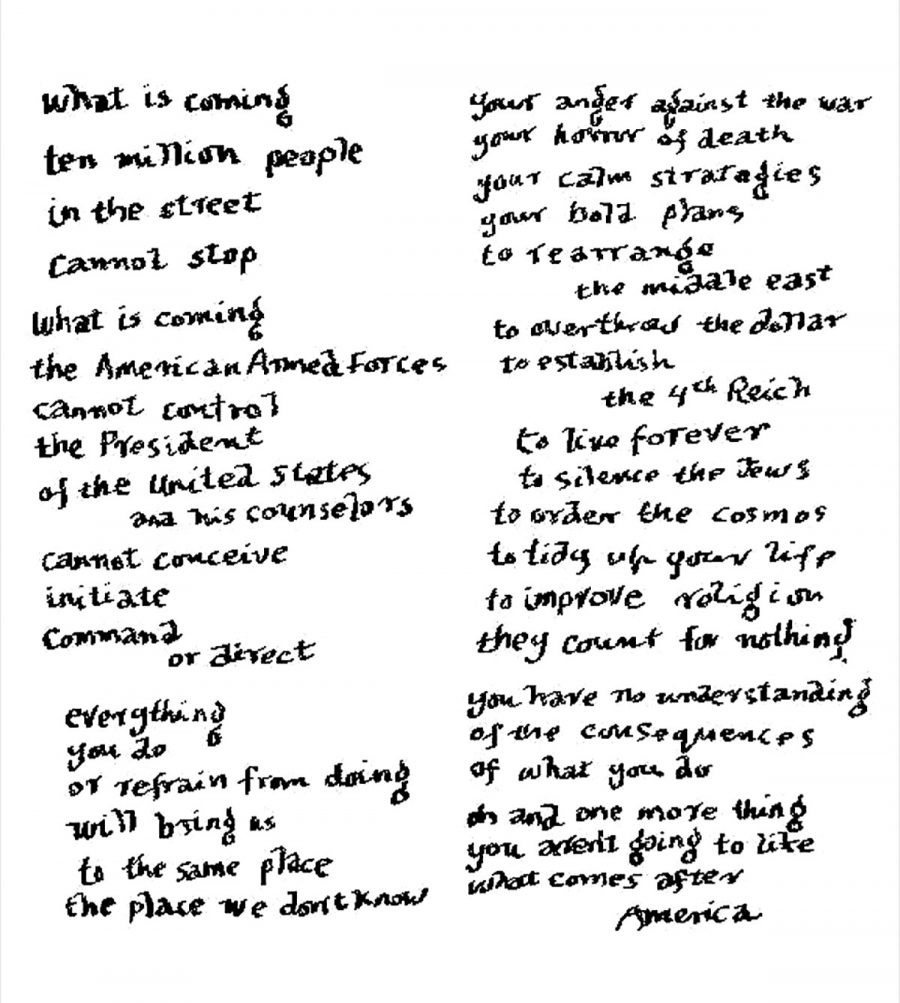 what is coming
ten million people
in the street
cannot stop
what is coming
the American Armed Forces
cannot control
the President
of the United States
and his counselors
cannot conceive
initiate
command
or direct
everything
you do
or refrain from doing
will bring us
to the same place
the place we don't know
your anger against the war
your horror of death
your calm strategies
your bold plans
to rearrange
the middle east
to overthrow the dollar
to establish
the 4th Reich
to live forever
to silence the Jews
to order the cosmos
to tidy up your life
to improve religion
they count for nothing
you have no understanding
of the consequences
of what you do
oh and one more thing
you aren't going to like
what comes after
America